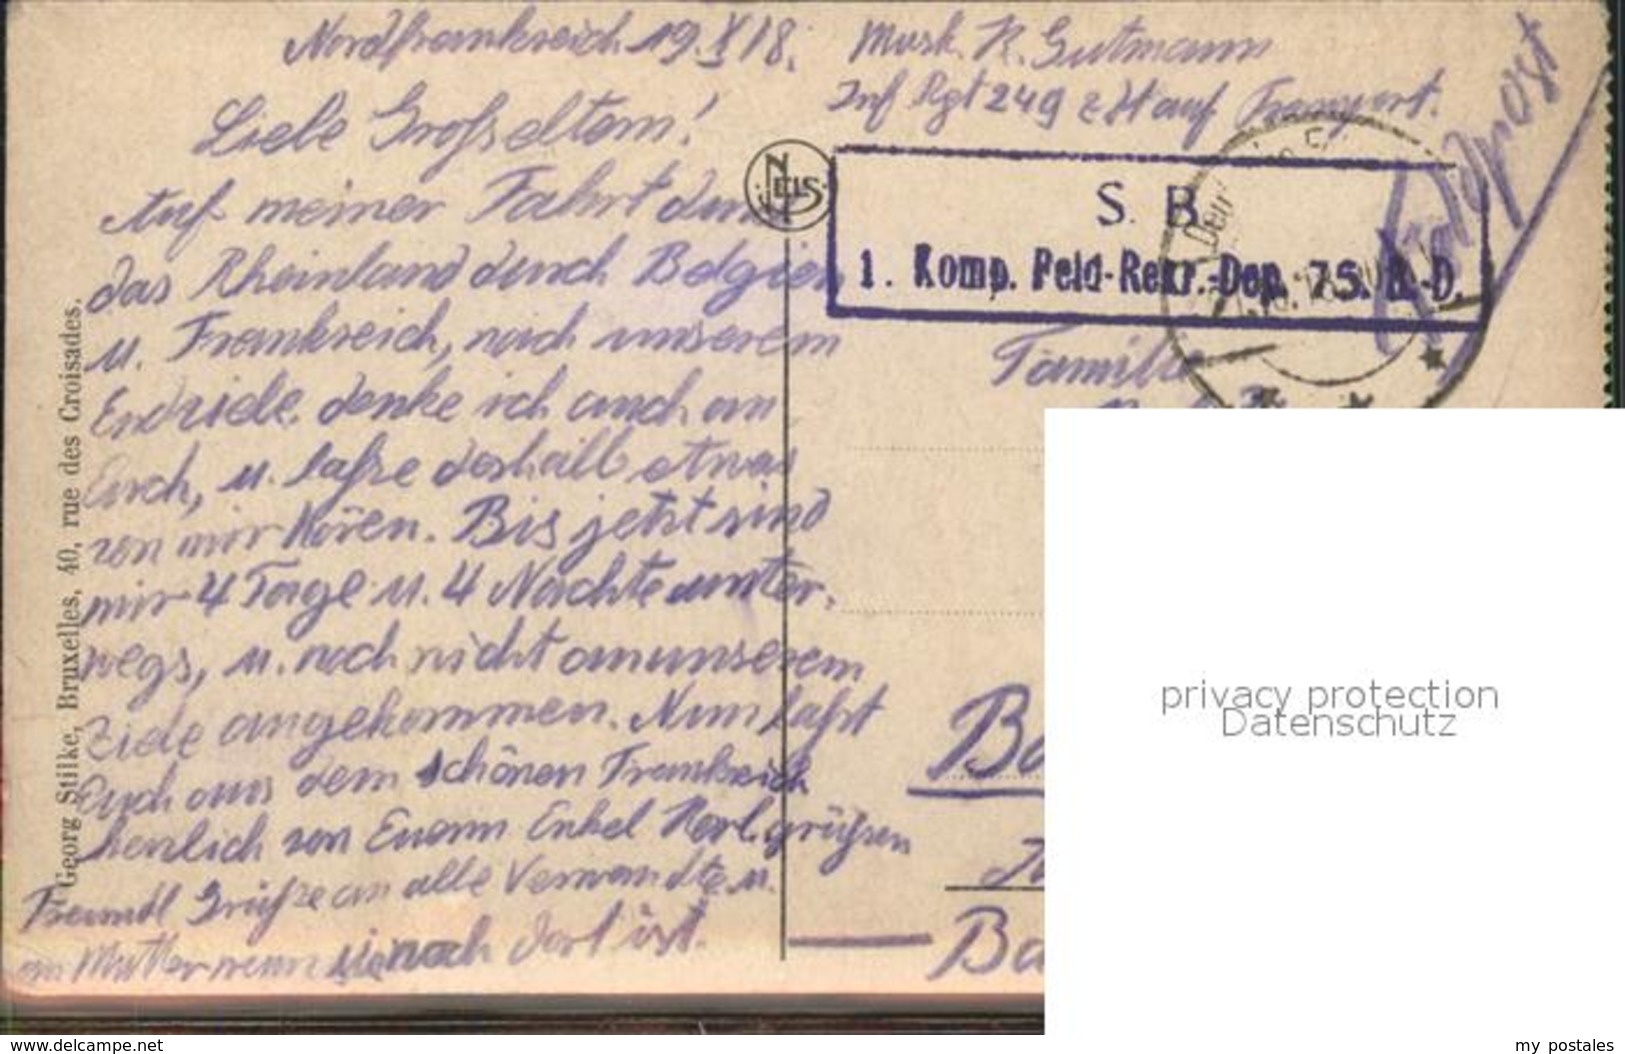 Nordfrankreich 19.X.18.
Liebe Großeltern!
Auf meiner Fahrt durch
das Rheinland durch Belgien
u. Frankreich, nach unserem
Endziele denke ich auch an
Euch, u. laße deshalb etwas
von mir hören. Bis jetzt sind
wir 4 Tage u. 4 Nächte unter-
wegs, u. noch nicht an unserem
Ziele angekommen. Nun laßt
Euch aus dem schönen Frankreich
herzlich von Euerm Enkel Karl grüßen
Freundl Grüße an alle Verwandte u.
an Mutter wenn sie noch dort ist.
Musk. K. Gutmann
Inf Rgt 249 z Zt auf Transport.
Feldpost
NELS
S. B.
1. Komp. Feld-Rekr.-Dep. 75. R.-D.
Familie
Georg Stilke, Bruxelles, 40, rue des Croisades.
privacy protection
Datenschutz
www.delcampe.net
my_postales